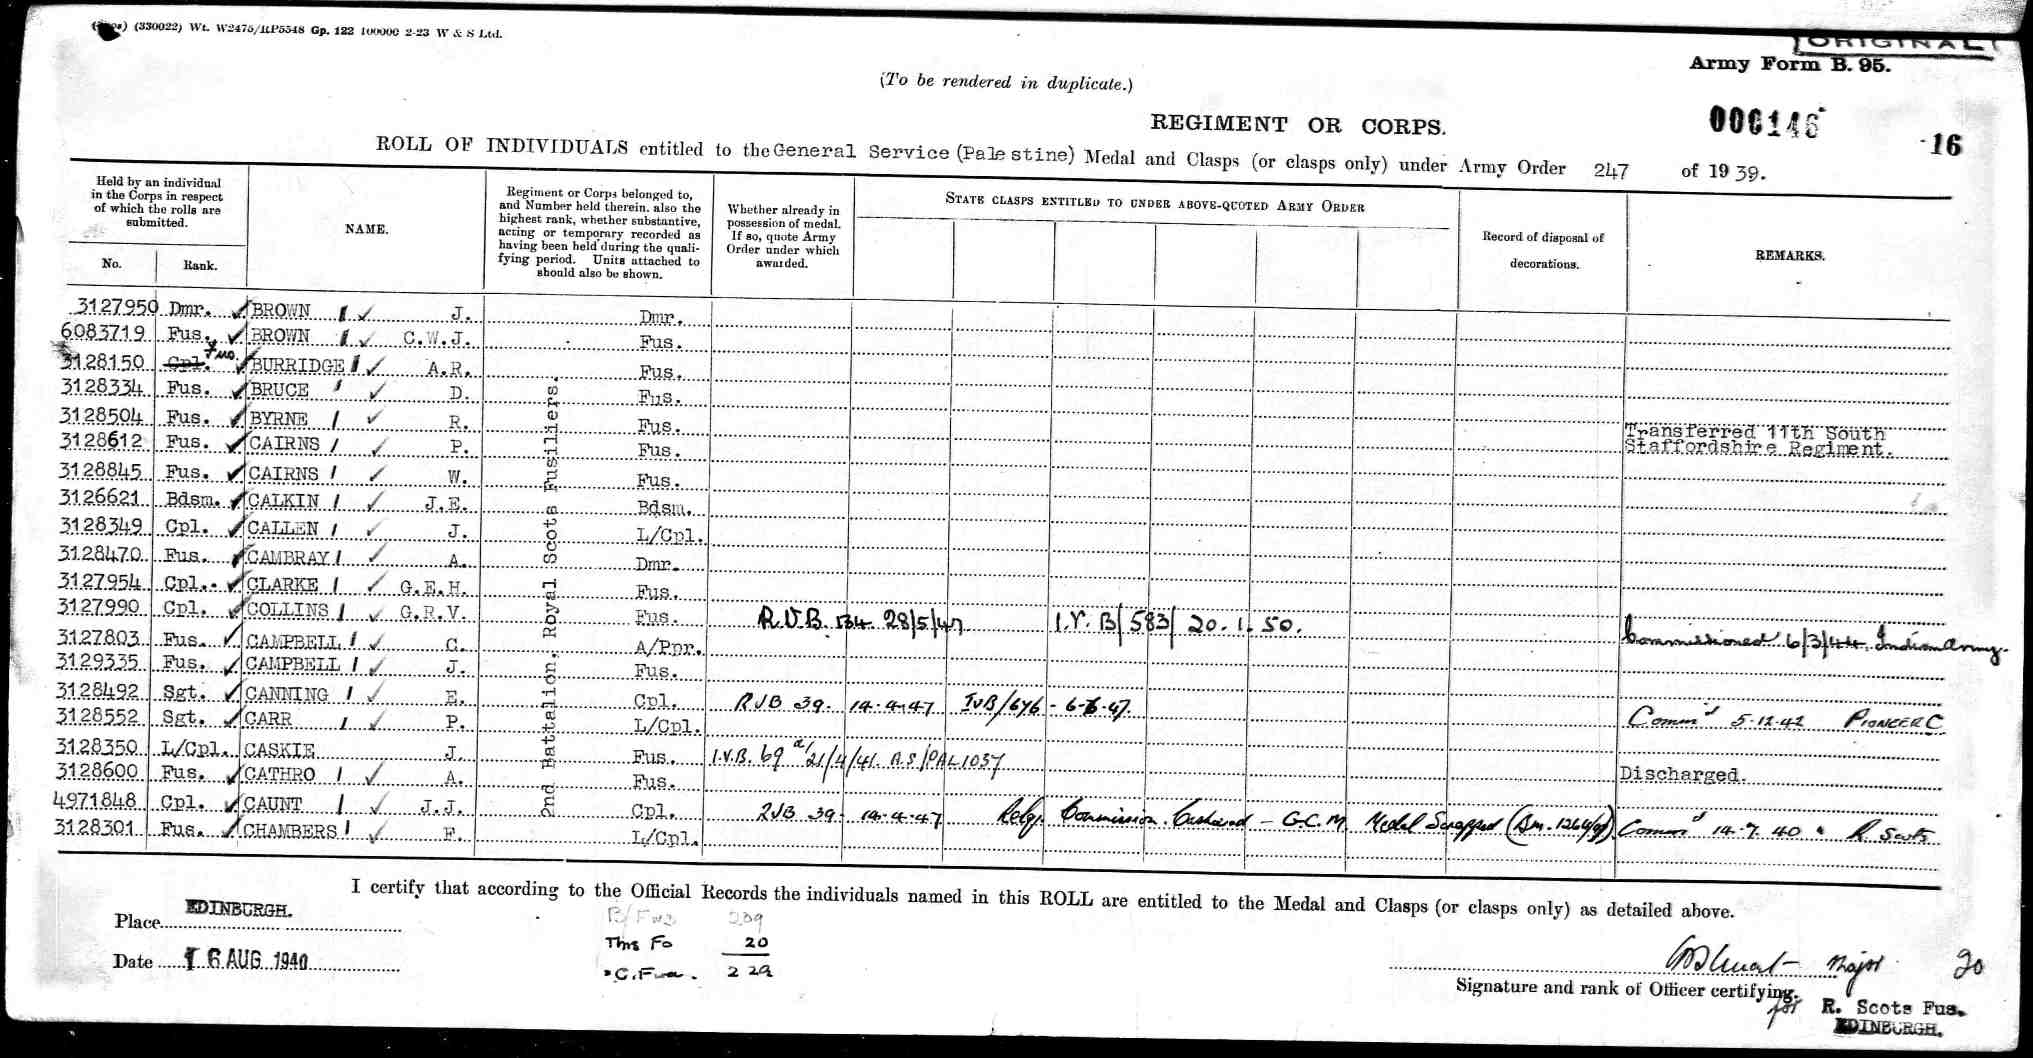 (330022) Wt. W2475/RP5548 Gp. 122 100000 2-23 W & S Ltd.
ORIGINAL
Army Form B. 95.
(To be rendered in duplicate.)
REGIMENT OR CORPS.
000146
16
ROLL OF INDIVIDUALS entitled to the General Service (Palestine) Medal and Clasps (or clasps only) under Army Order 247 of 1939.
Held by an individual in the Corps in respect of which the rolls are submitted.
No. Rank.
NAME.
Regiment or Corps belonged to, and Number held therein, also the highest rank, whether substantive, acting or temporary recorded as having been held during the qualifying period. Units attached to should also be shown.
Whether already in possession of medal. If so, quote Army Order under which awarded.
STATE CLASPS ENTITLED TO UNDER ABOVE-QUOTED ARMY ORDER
Record of disposal of decorations.
REMARKS.
2nd Battalion, Royal Scots Fusiliers.
3127950 Dmr. BROWN J. Dmr.
6083719 Fus. BROWN C.W.J. Fus.
3128150 Cpl. Fus. BURRIDGE A.R. Fus.
3128334 Fus. BRUCE D. Fus.
3128504 Fus. BYRNE R. Fus.
3128612 Fus. CAIRNS P. Fus. Transferred 11th South Staffordshire Regiment.
3128845 Fus. CAIRNS W. Fus.
3126621 Bdsm. CALKIN J.E. Bdsm.
3128349 Cpl. CALLEN J. L/Cpl.
3128470 Fus. CAMBRAY A. Dmr.
3127954 Cpl. CLARKE G.E.H. Fus.
3127990 Cpl. COLLINS G.R.V. Fus. R.V.B. 134 28/5/47 I.V.B/583/20.1.50. Commissioned 6/3/44. Indian Army.
3127803 Fus. CAMPBELL C. A/Ppr.
3129335 Fus. CAMPBELL J. Fus.
3128492 Sgt. CANNING E. Cpl. RVB 39. 14.4.47 IVB/676 - 6.6.47. Comm'd 5.12.42 PIONEER C
3128552 Sgt. CARR P. L/Cpl.
3128350 L/Cpl. CASKIE J. Fus. I.V.B. 69 21/4/41. A.S/PAL1037 Discharged.
3128600 Fus. CATHRO A. Fus.
4971848 Cpl. CAUNT J.J. Cpl. RVB 39. 14.4.47 Relq. Commission. Cashiered - G.C.M. Medal Scrapped Comm'd 14.7.40 R Scots
3128301 Fus. CHAMBERS F. L/Cpl.
I certify that according to the Official Records the individuals named in this ROLL are entitled to the Medal and Clasps (or clasps only) as detailed above.
Place EDINBURGH.
Date 16 AUG 1940
B/Fwd 209
This Fo 20
C. Fwd. 229
Major
20
Signature and rank of Officer certifying.
for R. Scots Fus.
EDINBURGH.